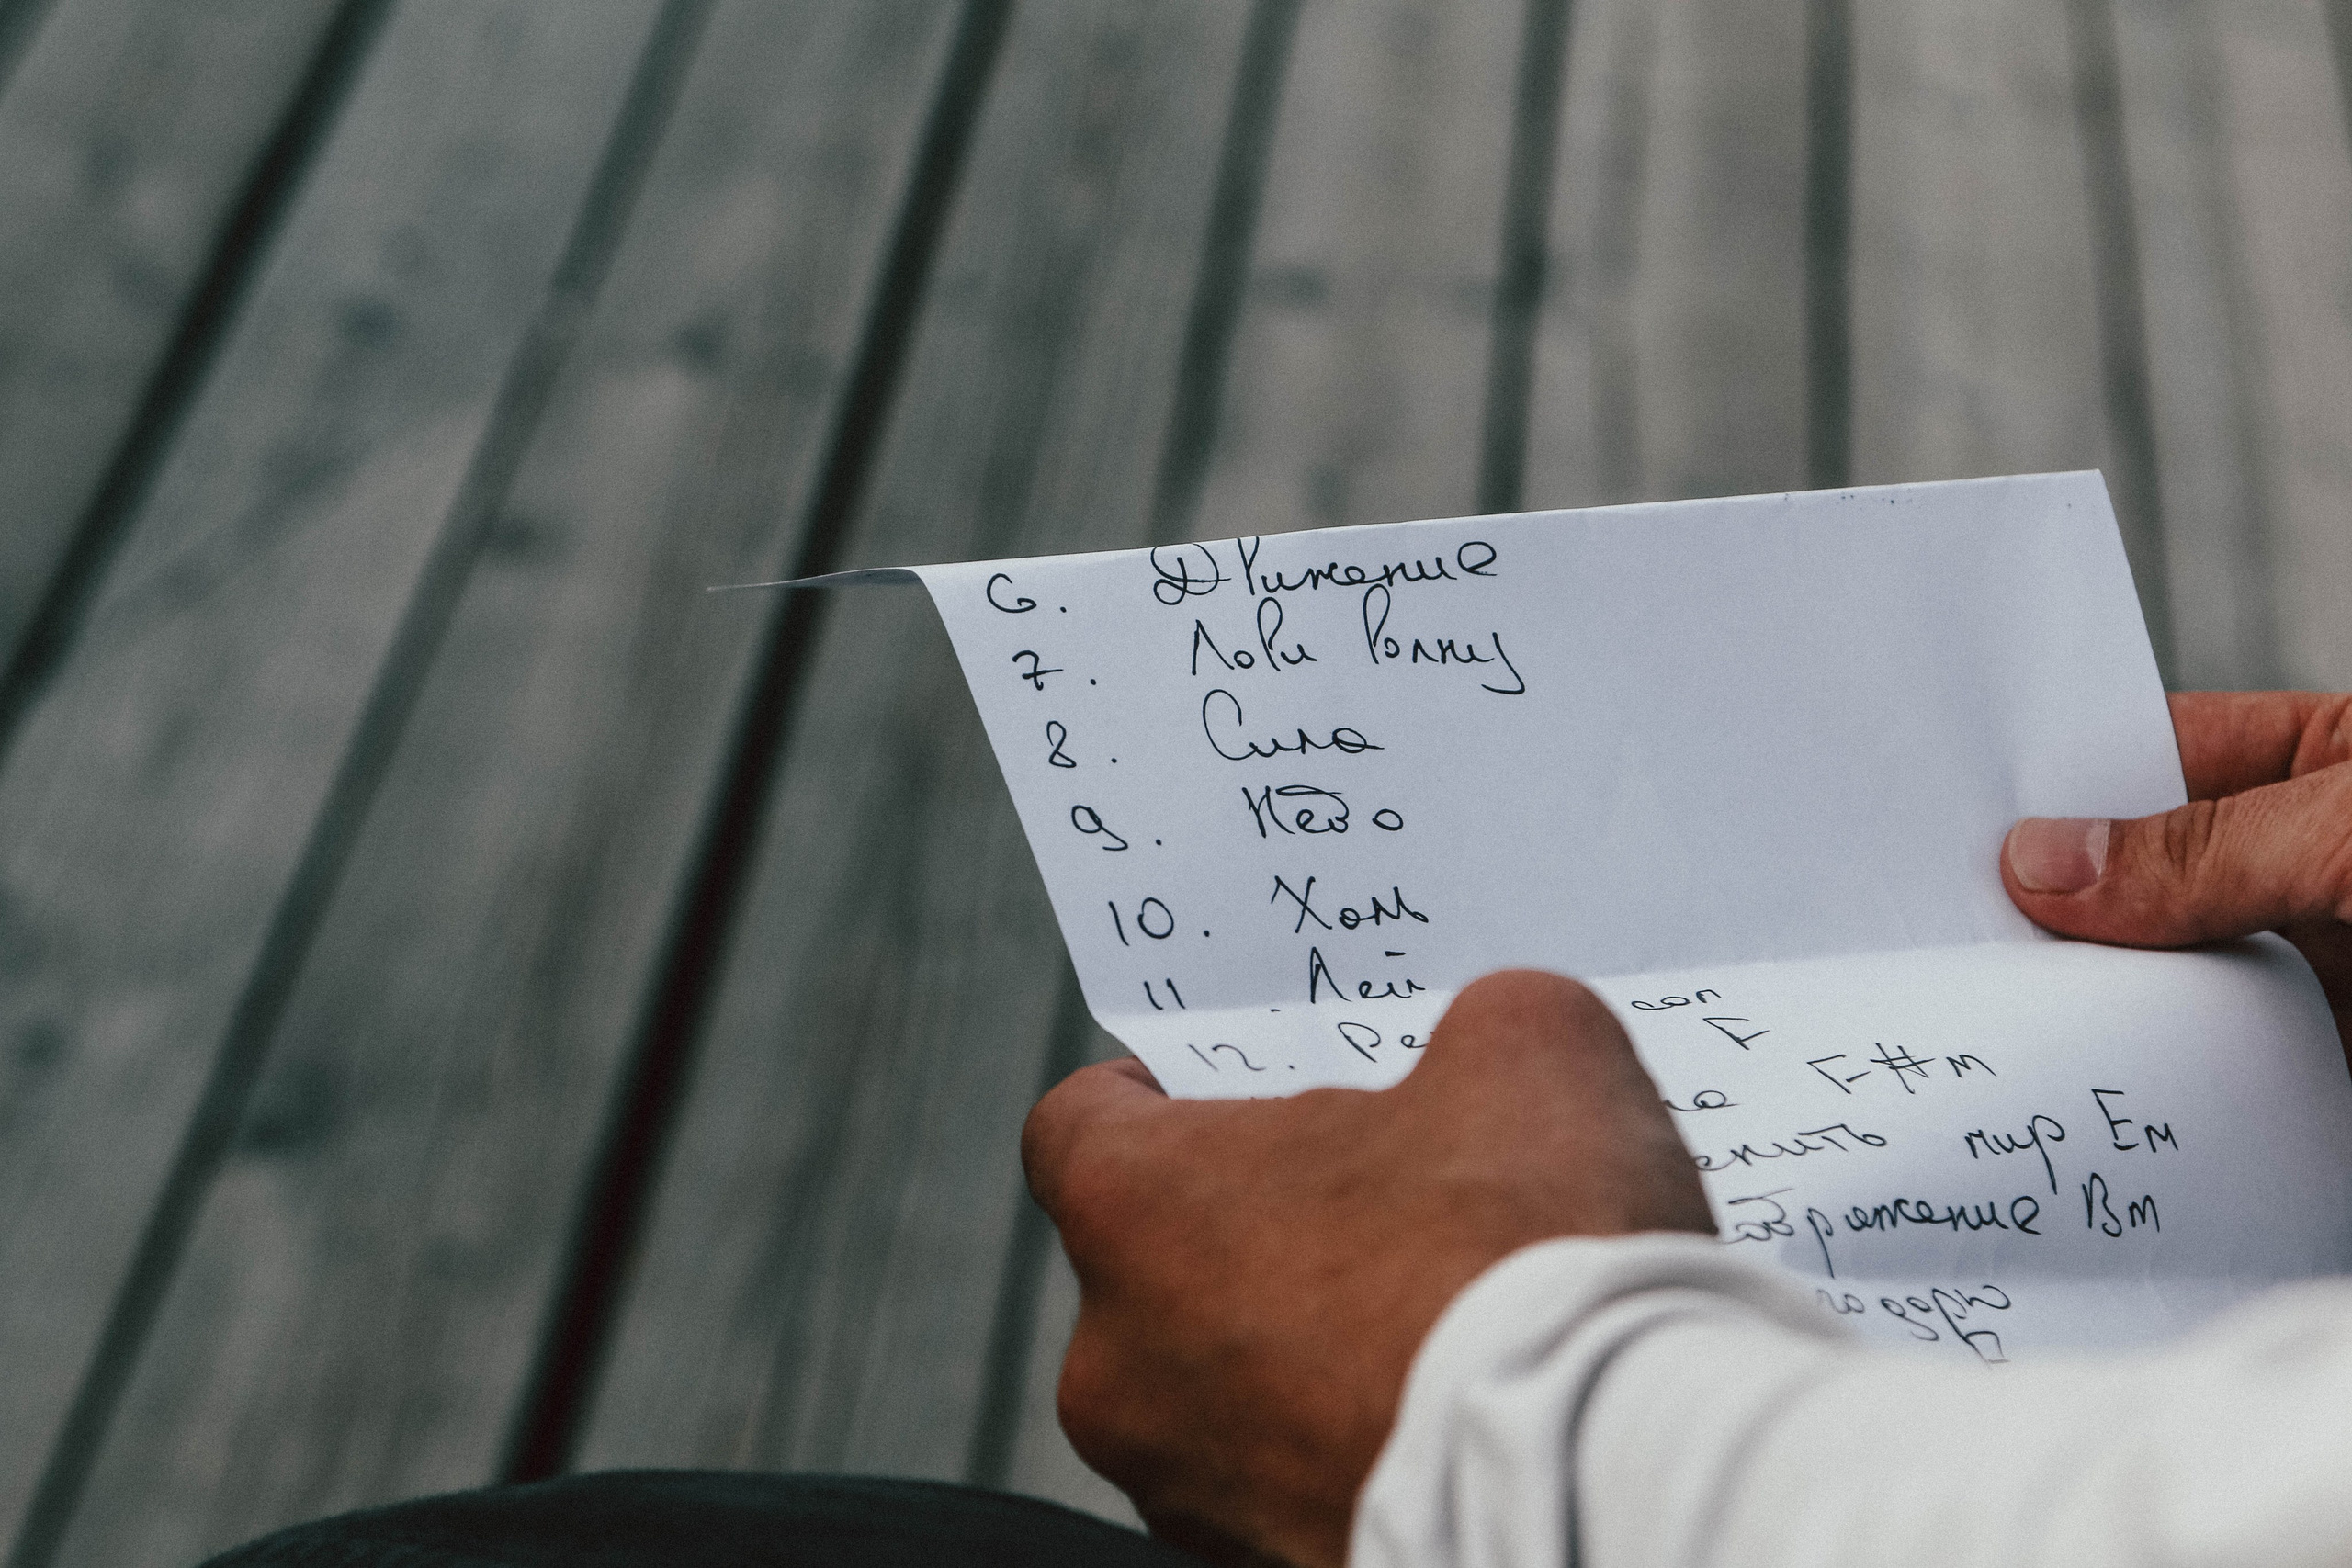 6. Движение
7. Лови волну
8. Сила
9. Небо
10. Холь
11. Лей
12. Ре сол
F
F#m
енить мир Em
ображение Bm
годарю